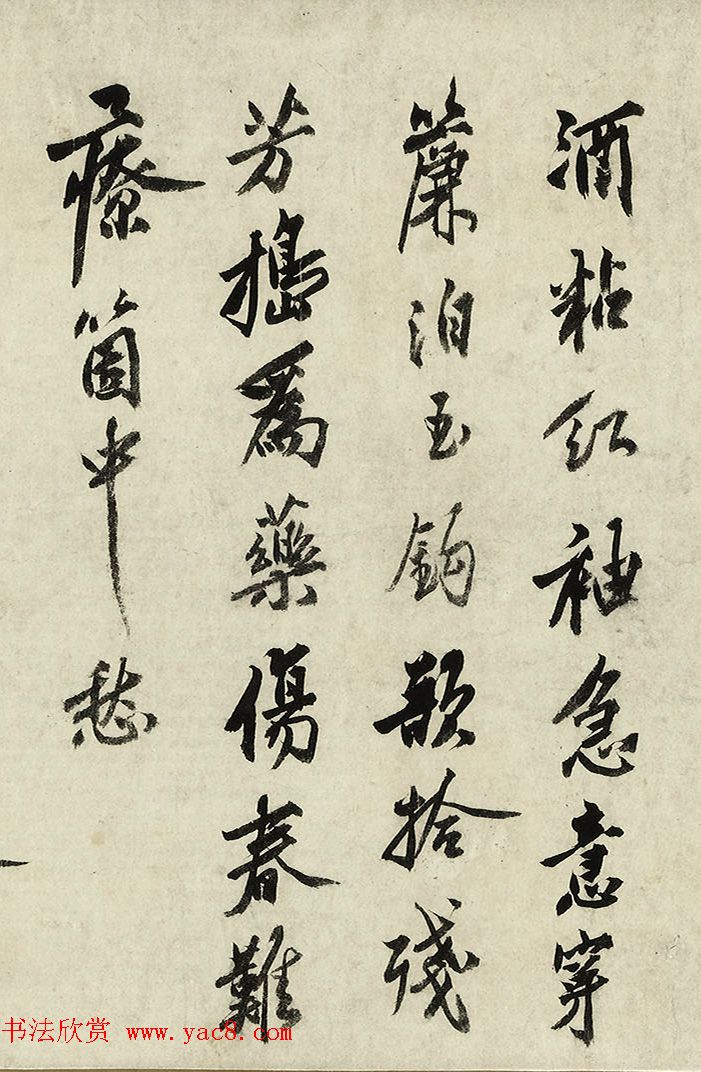 酒粘红袖急意穿
簾泊玉鈎歌拾殘
芳擣為藥傷春難
療箇中愁
书法欣赏 www.yac8.com